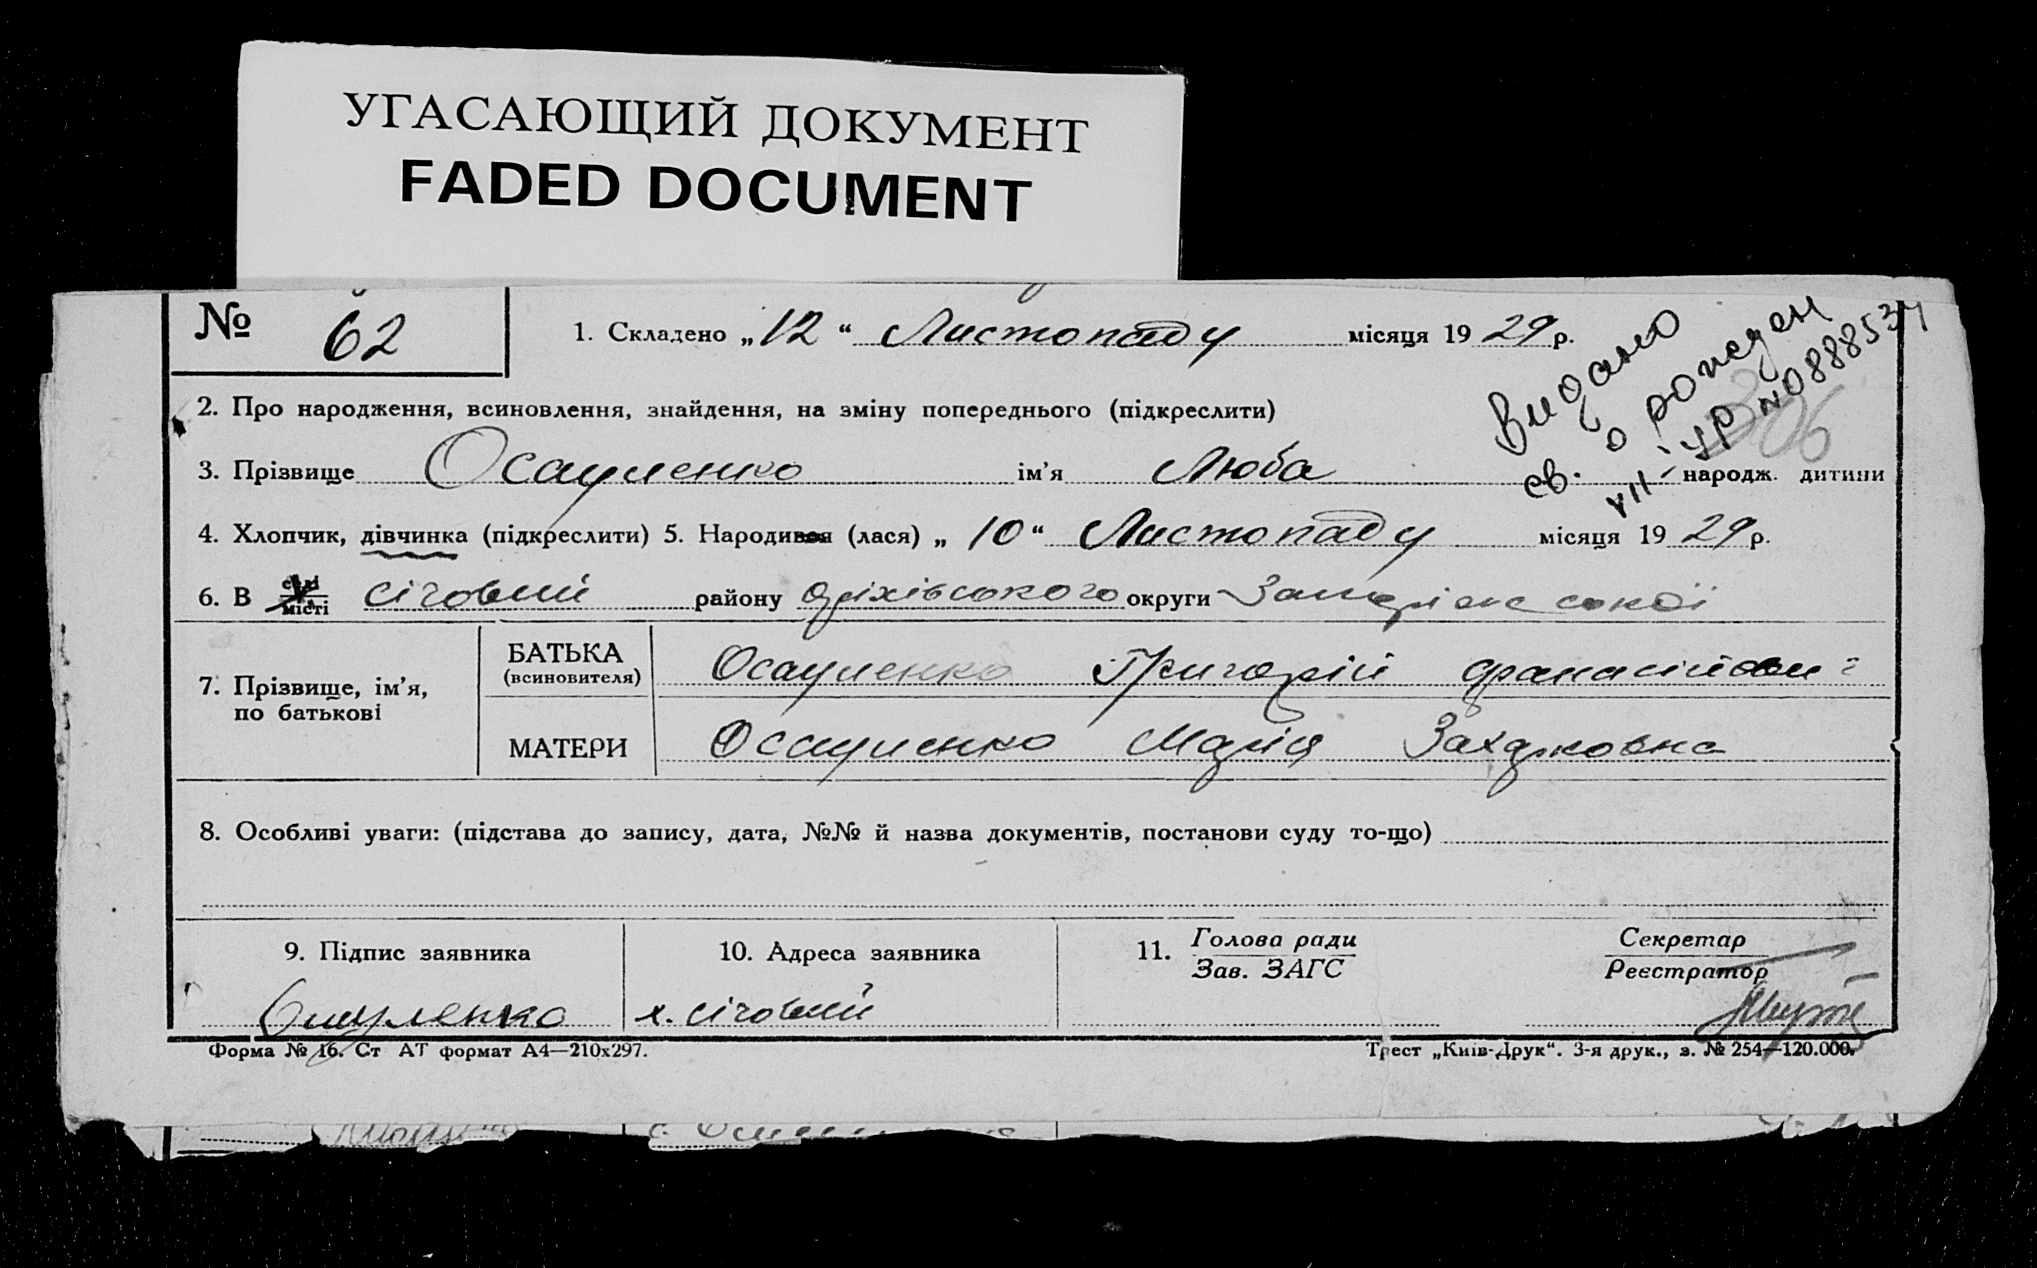 УГАСАЮЩИЙ ДОКУМЕНТ
FADED DOCUMENT
№ 62
1. Складено „12“ Листопаду місяця 1929 р.
Видано
св. о рожден
VII-УР №0888534
306
2. Про народження, всиновлення, знайдення, на зміну попереднього (підкреслити)
3. Прізвище Осауленко ім'я Люба народж. дитини
4. Хлопчик, дівчинка (підкреслити) 5. Народився (лася) „10“ Листопаду місяця 1929 р.
6. В селі місті х. Січовий району Оріхівського округи Запорізської
7. Прізвище, ім'я, по батькові
БАТЬКА (всиновителя) Осауленко Григорій
МАТЕРИ Осауленко Марія Захаровна
8. Особливі уваги: (підстава до запису, дата, №№ й назва документів, постанови суду то-що)
9. Підпис заявника
10. Адреса заявника
11. Голова ради
Зав. ЗАГС
Секретар
Реєстратор
Осауленко
х. Січовий
Форма № 16. Ст АТ формат А4—210х297.
Трест „Київ-Друк“. 3-я друк., з. № 254—120.000.